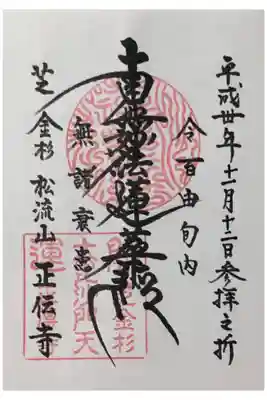 平成卅年十一月十二日参拝之折
令百由旬内
南無妙法蓮華経
無諸衰患
芝 金杉 松流山 正伝寺